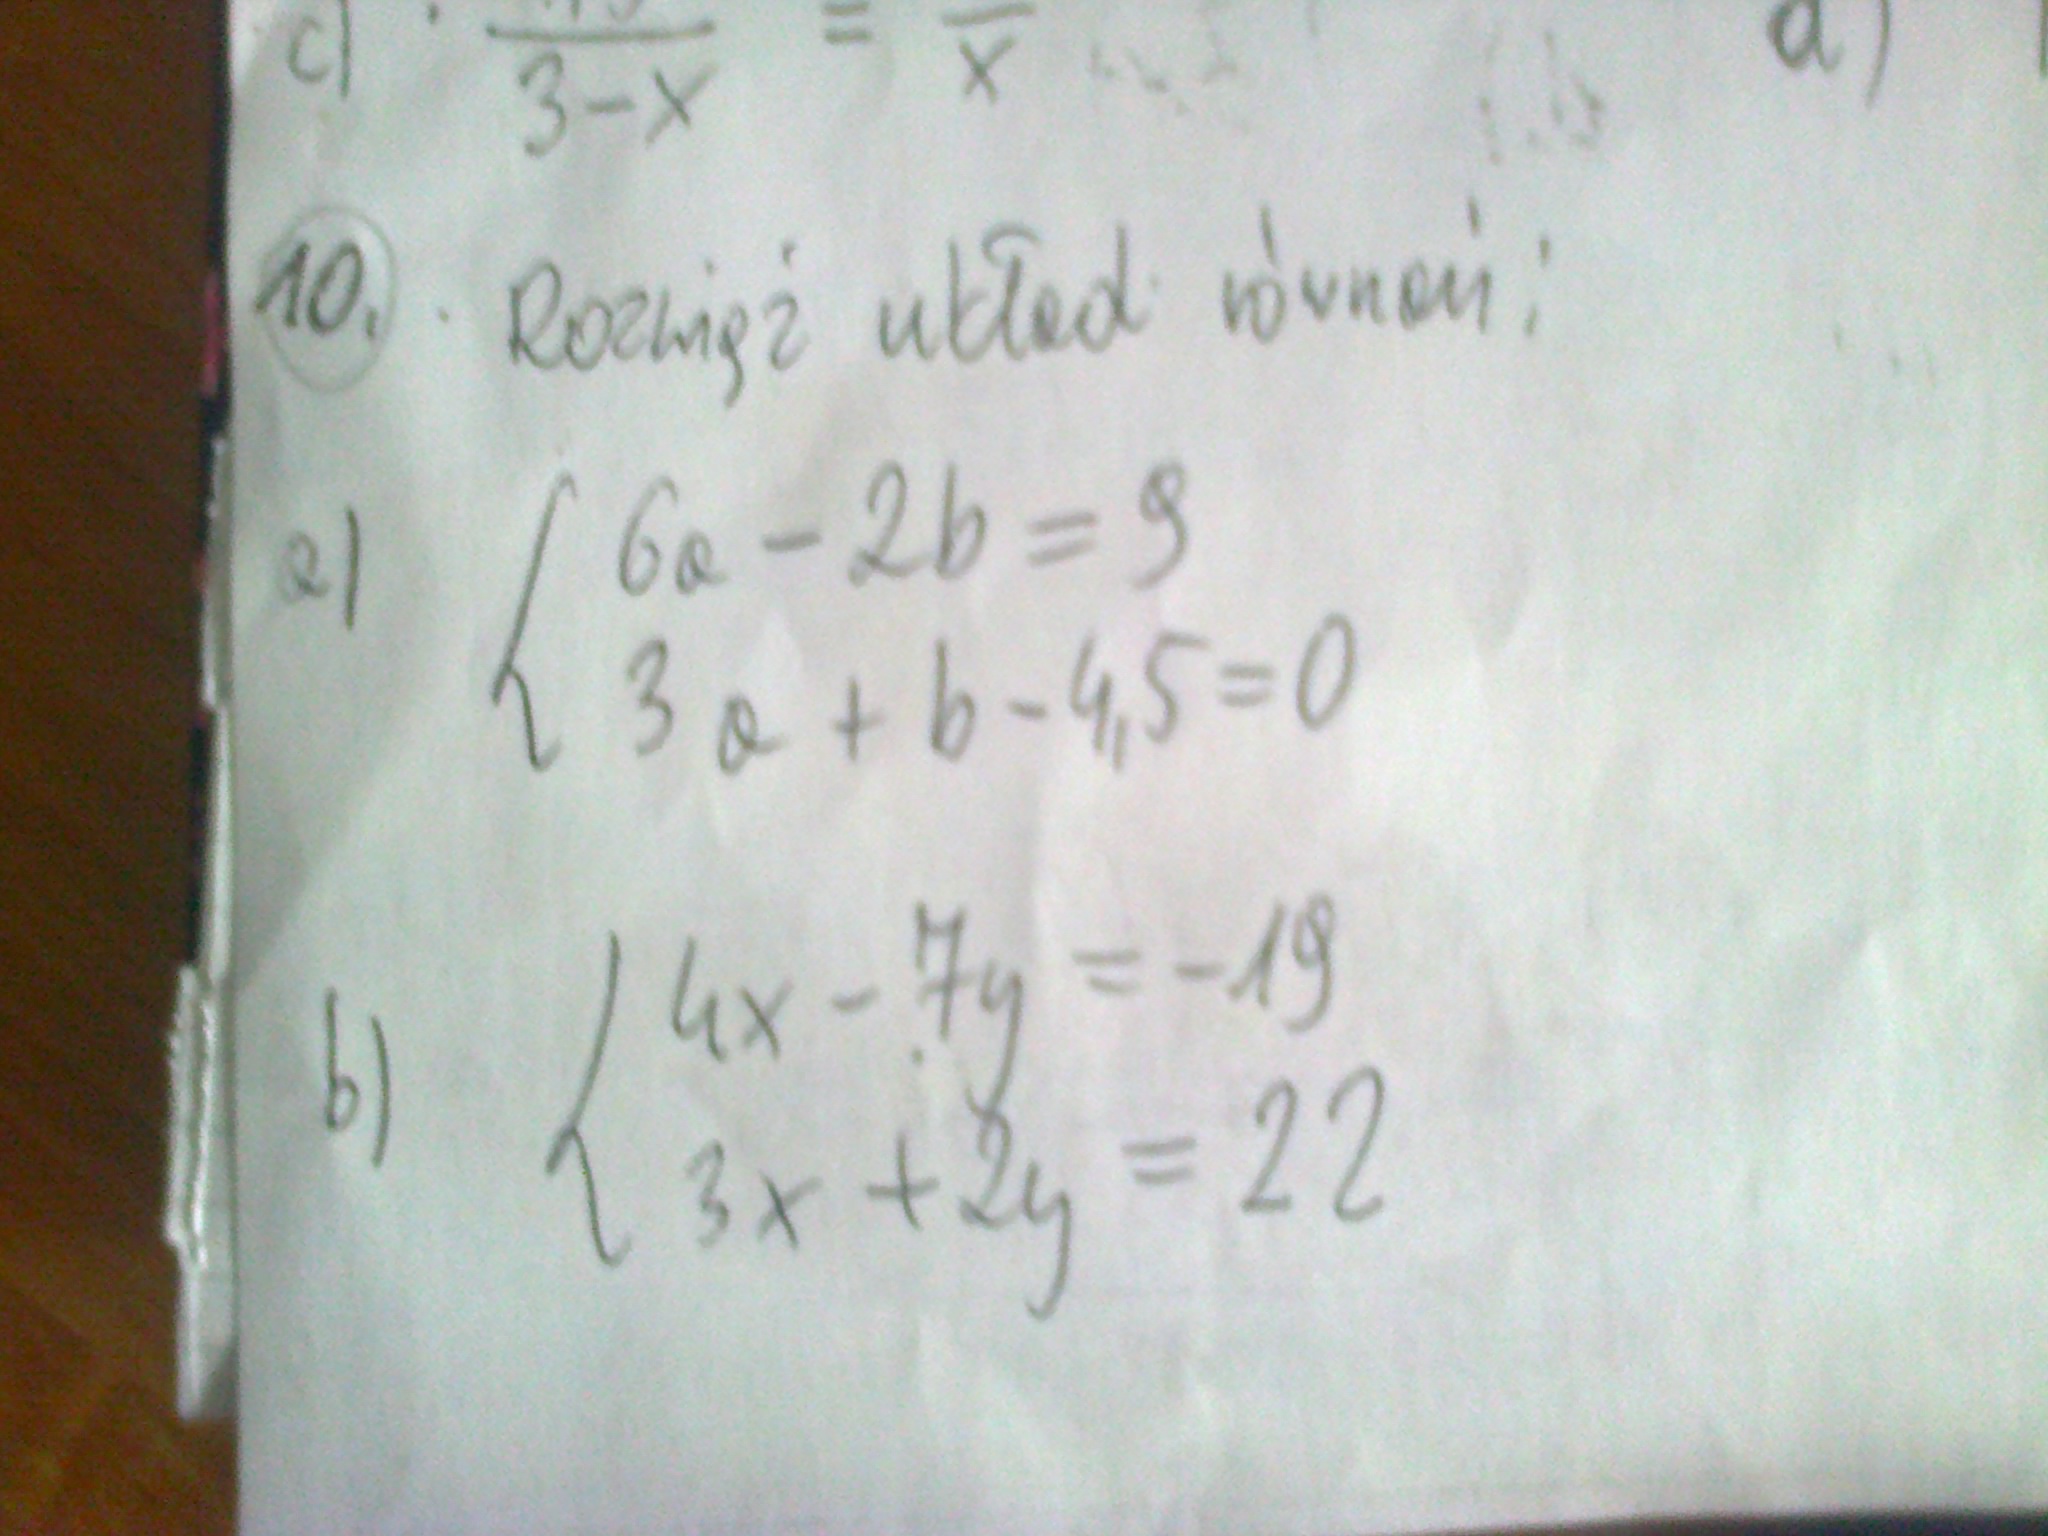 c) 3-x = x d)
10. Rozwiąż układ równań:
a) { 6a - 2b = 9
3a + b - 4,5 = 0
b) { 4x - 7y = -19
3x + 2y = 22